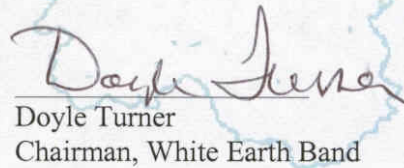 Doyle Turner
Doyle Turner
Chairman, White Earth Band